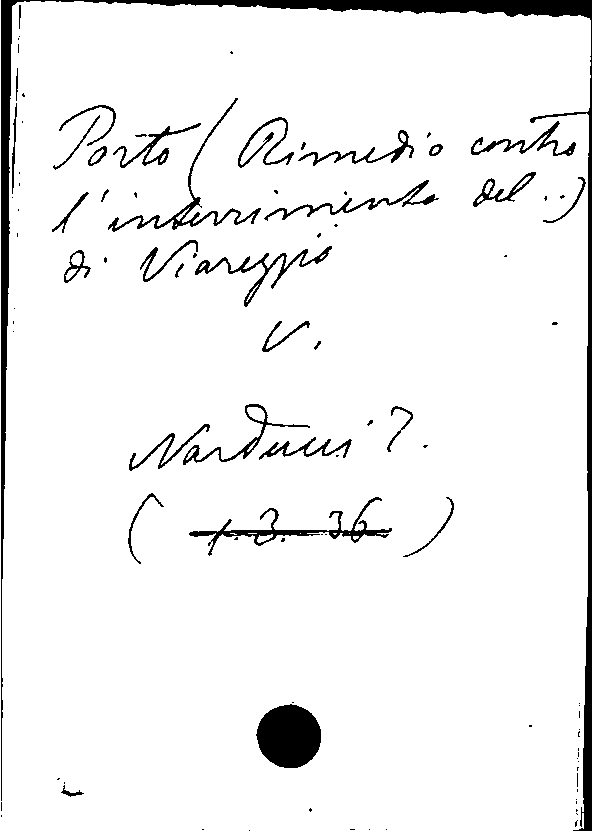 Porto (Rimedio contro
l'interrimento del ..)
di Viareggio
V.
Narducci T.
( 1. 3. 36 )